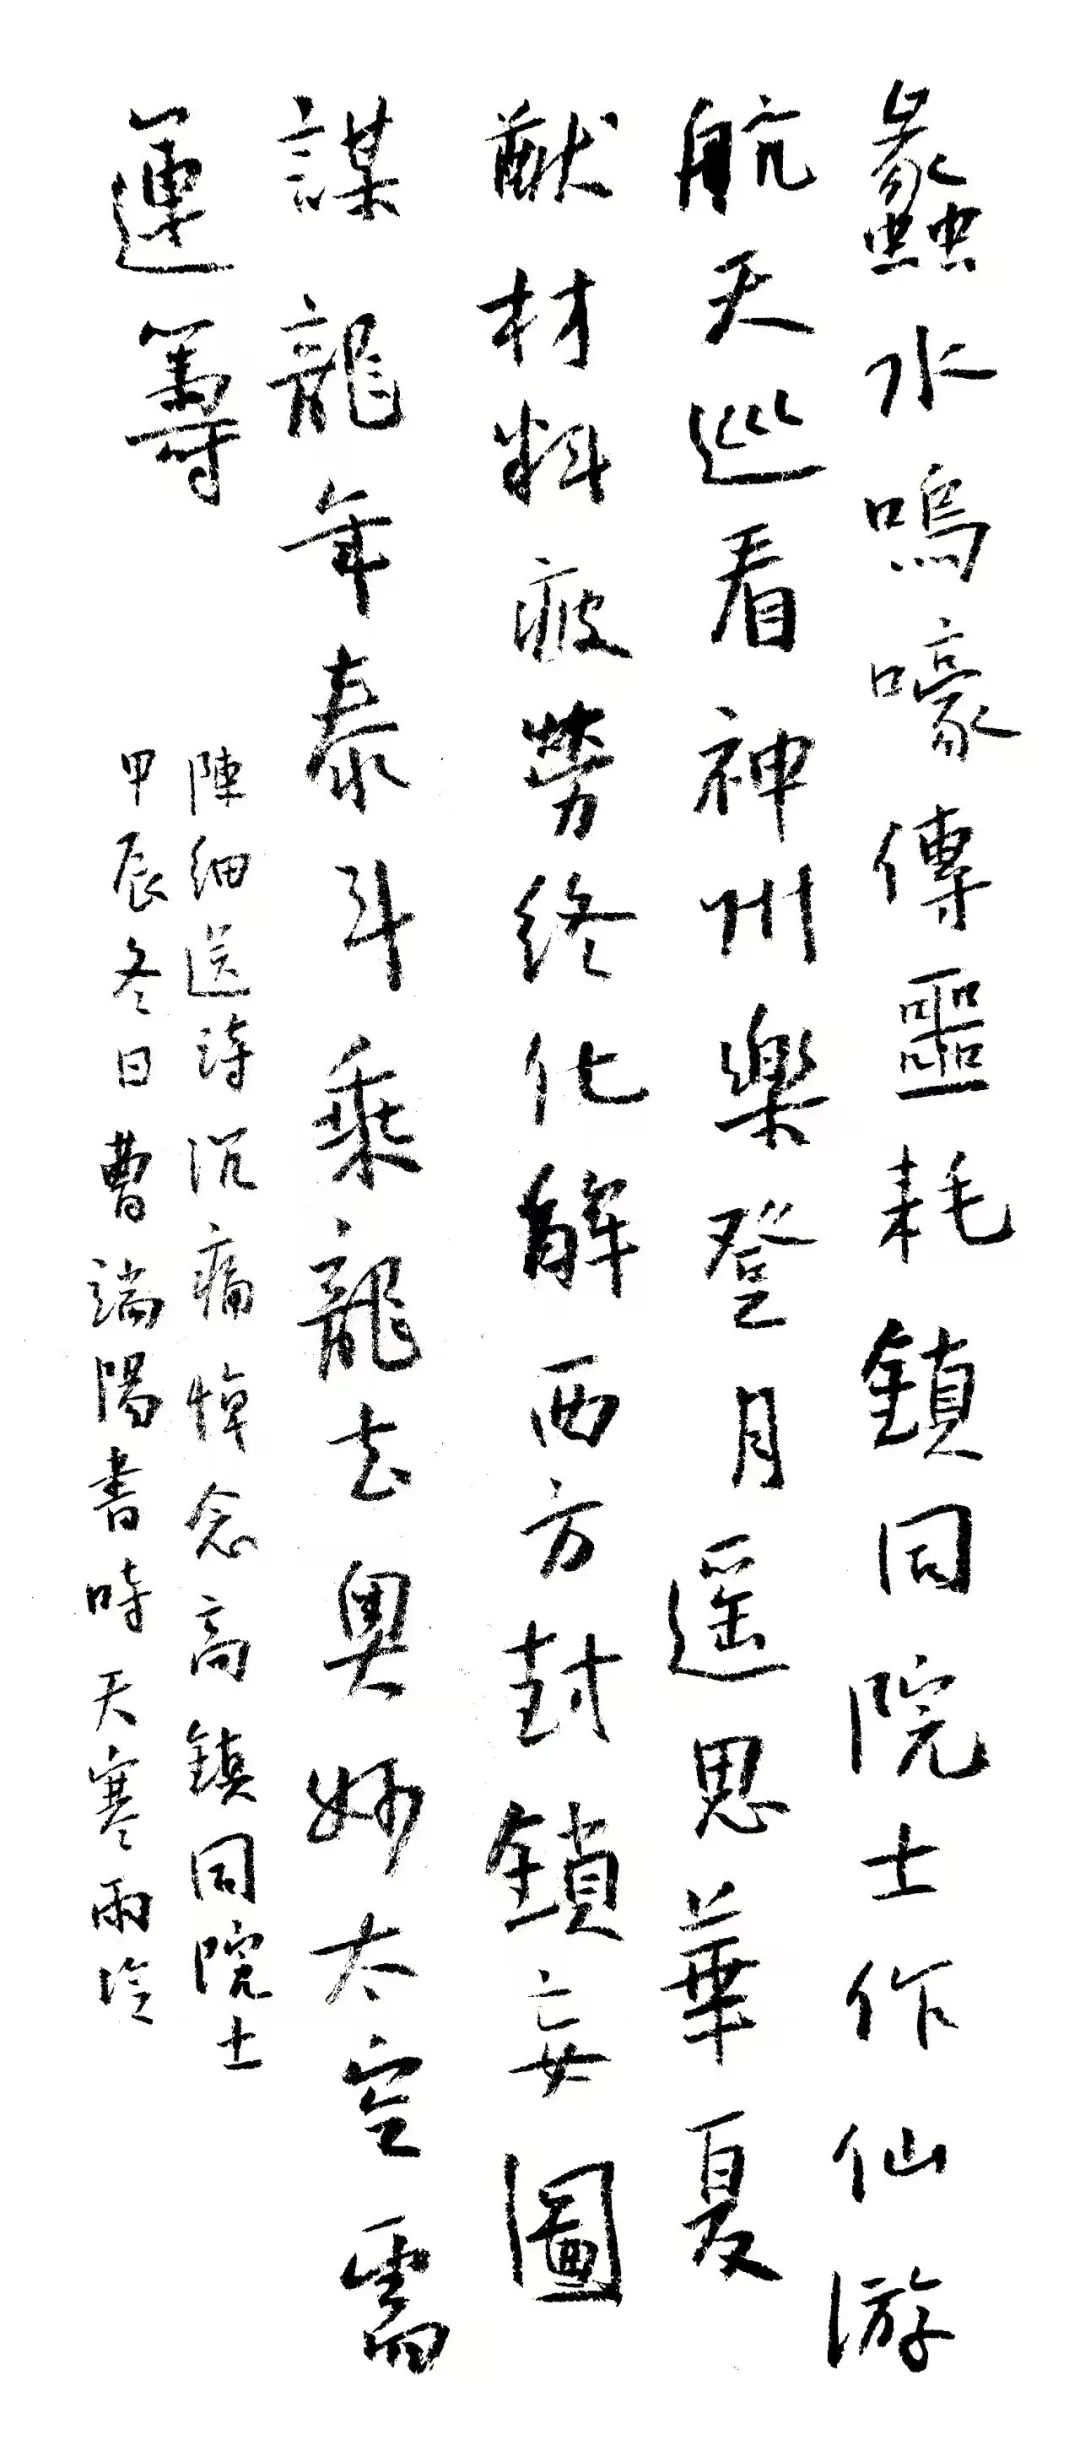 蠡水嗚嚎傳噩耗鎮同院士作仙游
航天巡看神州樂登月遥思華夏
猷材料疲勞終化解西方封鎖妄圖
謀龍年泰斗乘龍去奥妙太空需
運籌
陳細送詩沉痛悼念高鎮同院士
甲辰冬日曹端陽書時天寒雨冷